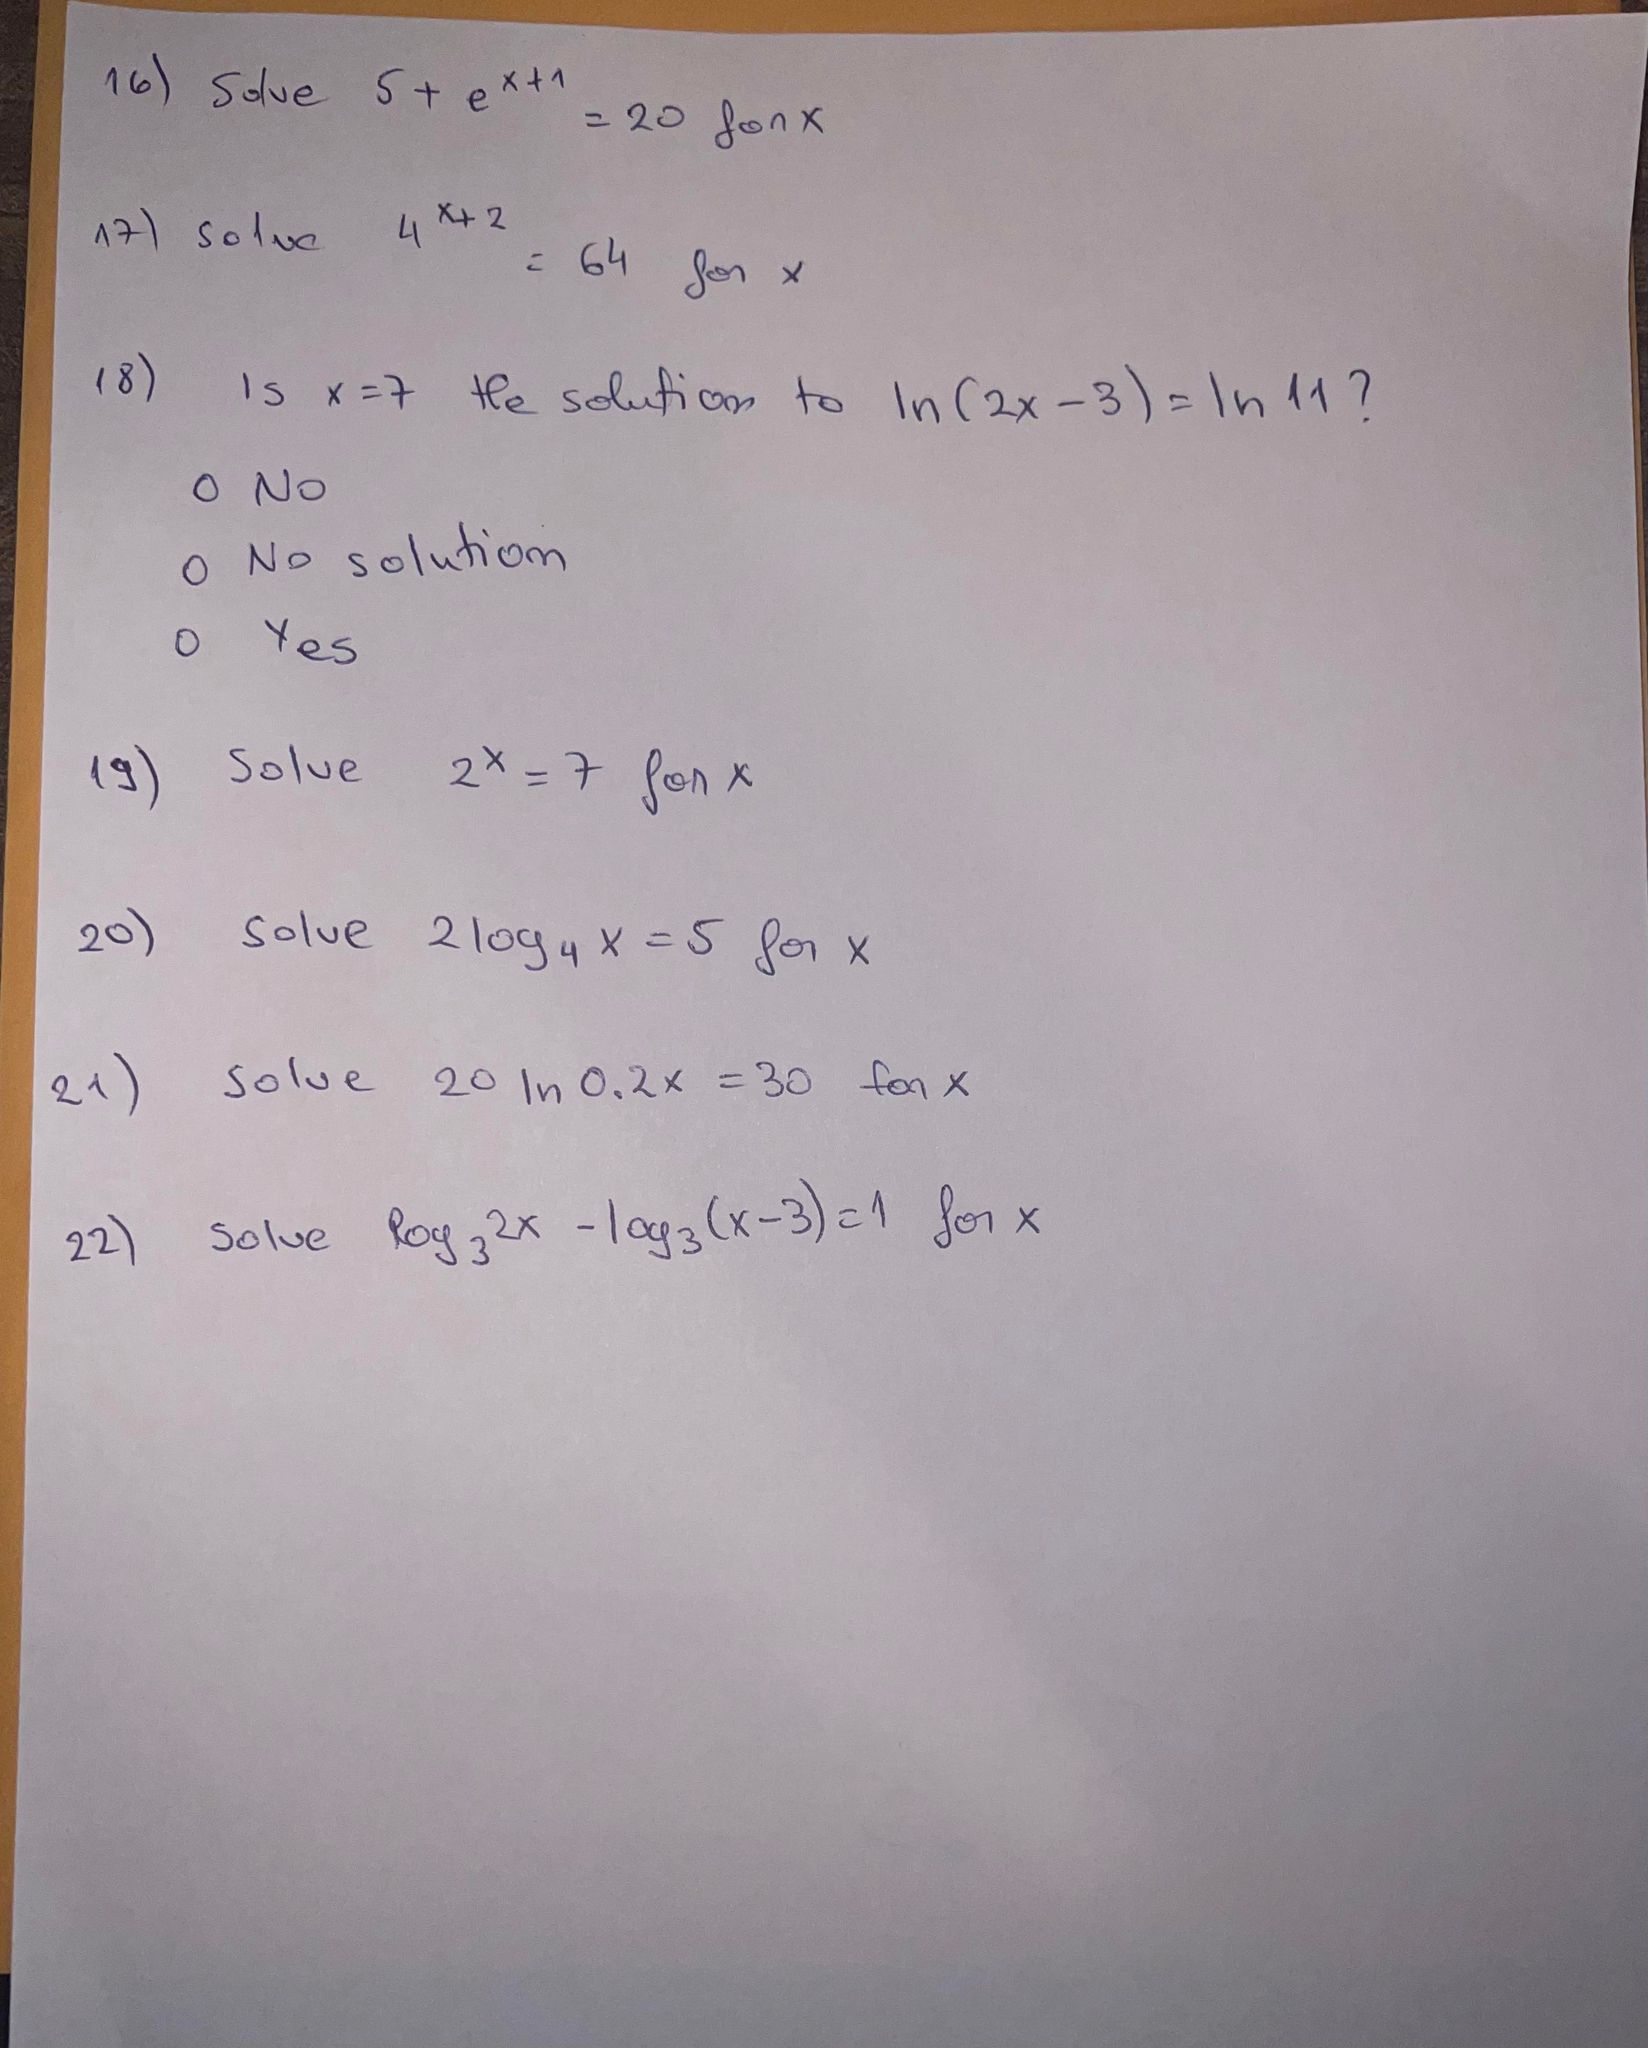 16) Solve 5 + e^x+1 = 20 for x
17) solve 4^x+2 = 64 for x
18) Is x=7 the solution to ln(2x-3)=ln 11?
o No
o No solution
o Yes
19) Solve 2^x = 7 for x
20) solve 2log₄ x = 5 for x
21) solve 20 ln 0.2x = 30 for x
22) solve log₃ 2x - log₃(x-3)=1 for x